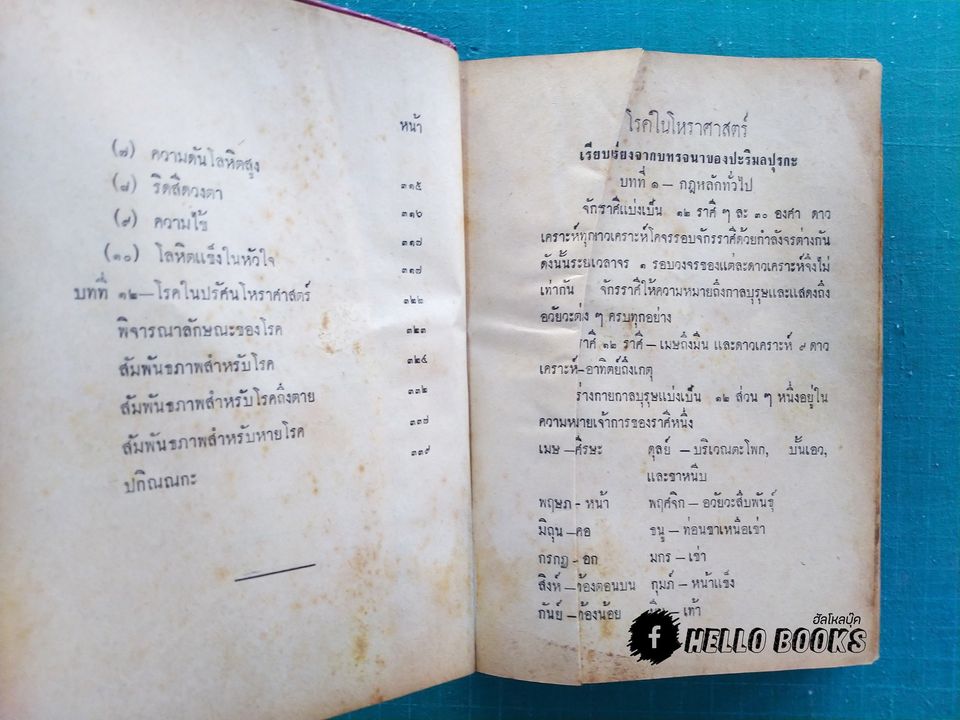 หน้า
(๗) ความดันโลหิตสูง
(๘) ริดสีดวงตา ๓๑๕
(๙) ความไข้ ๓๑๖
(๑๐) โลหิตแข็งในหัวใจ ๓๑๗
บทที่ ๑๒—โรคในปรัศนโหราศาสตร์ ๓๑๗
พิจารณาลักษณะของโรค ๓๒๒
สัมพันธภาพสำหรับโรค ๓๒๓
สัมพันธภาพสำหรับโรคถึงตาย ๓๒๔
สัมพันธภาพสำหรับหายโรค ๓๓๒
ปกิณณกะ ๓๓๗
๓๓๙
โรคในโหราศาสตร์
เรียบเรียงจากบทรจนาของปะริมลปุรกะ
บทที่ ๑ — กฎหลักทั่วไป
จักรราศีแบ่งเป็น ๑๒ ราศี ๆ ละ ๓๐ องศา ดาว
เคราะห์ทุกดาวเคราะห์โคจรรอบจักรราศีด้วยกำลังจรต่างกัน
ดังนั้นระยะเวลาจร ๑ รอบวงจรของแต่ละดาวเคราะห์จึงไม่
เท่ากัน จักรราศีให้ความหมายถึงกาลบุรุษและแสดงถึง
อวัยวะต่าง ๆ ครบทุกอย่าง
ราศี ๑๒ ราศี — เมษถึงมีน และดาวเคราะห์ ๙ ดาว
เคราะห์—อาทิตย์ถึงเกตุ
ร่างกายกาลบุรุษแบ่งเป็น ๑๒ ส่วน ๆ หนึ่งอยู่ใน
ความหมายเจ้าการของราศีหนึ่ง
เมษ —ศีรษะ ตุลย์ — บริเวณตะโพก, บั้นเอว,
และขาหนีบ
พฤษภ — หน้า พฤศจิก — อวัยวะสืบพันธุ์
มิถุน —คอ ธนู — ท่อนขาเหนือเข่า
กรกฎ — อก มกร — เข่า
สิงห์ —ท้องตอนบน กุมภ์ — หน้าแข็ง
กันย์ —ท้องน้อย มีน — เท้า
ฮัลโหลบุ๊ค
f HELLO BOOKS